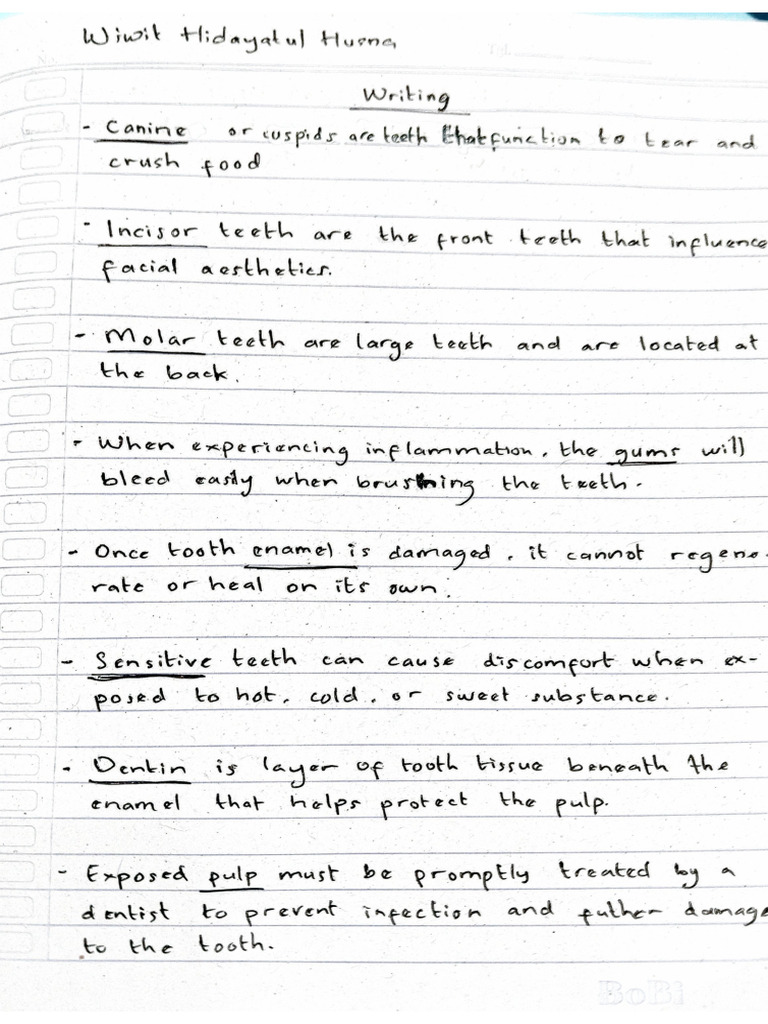 Wiwit Hidayatul Husna
Writing
- Canine or cuspids are teeth that function to tear and
crush food
- Incisor teeth are the front teeth that influence
facial aesthetics.
- Molar teeth are large teeth and are located at
the back.
- When experiencing inflammation, the gums will
bleed easily when brushing the teeth.
- Once tooth enamel is damaged, it cannot regene-
rate or heal on its own.
- Sensitive teeth can cause discomfort when ex-
posed to hot, cold, or sweet substance.
- Dentin is layer of tooth tissue beneath the
enamel that helps protect the pulp.
- Exposed pulp must be promptly treated by a
dentist to prevent infection and futher damage
to the tooth.
BoBi